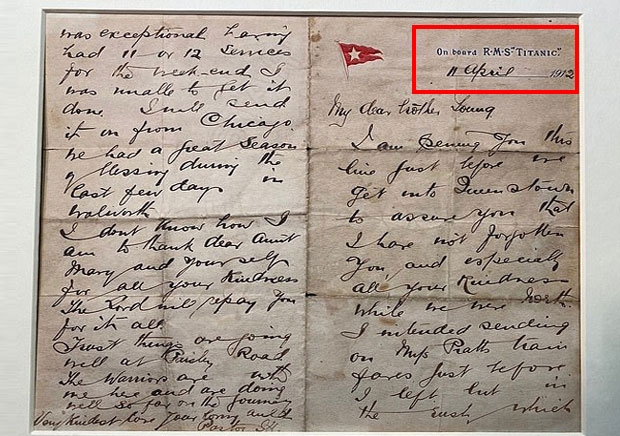 On board R.M.S. "TITANIC".
11 April 1912
My dear brother Young
I am penning you this
line just before we
get into Queenstown
to assure you that
I have not forgotten
you, and especially
all your kindness
while we were North.
I intended sending
on Mrs Pratts train
fares just before
I left but in
the rush which
was exceptional having
had 11 or 12 Services
for the week-end I
was unable to get it
done. I will send
it on from Chicago.
We had a great Season
of blessing during the
last few days in
Walworth
I dont know how I
am to thank dear Aunt
Mary and yourself
for all your kindness
The Lord will repay you
for it all.
Trust things are going
well at Paisley Road
The Warriors are with
me here and are doing
well so far on the journey
Very Kindest love your loving auld
Pastor